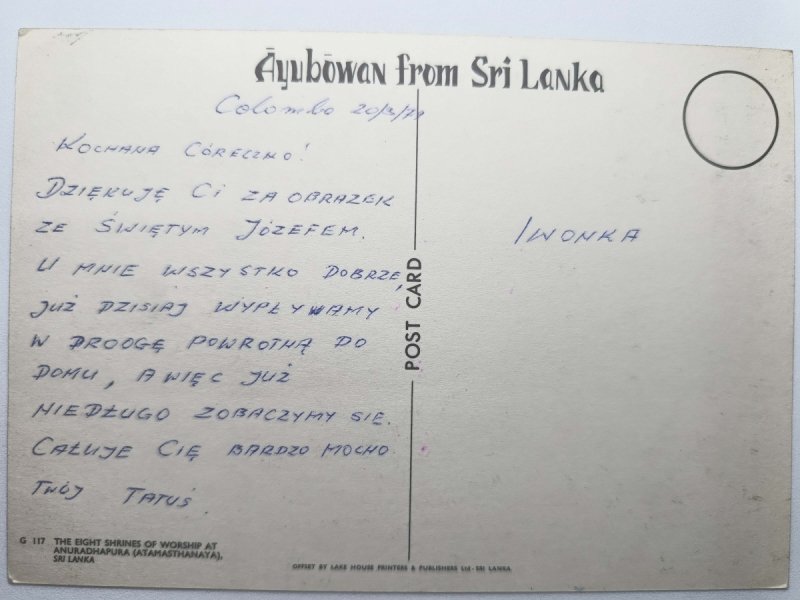 Āyubōwan from Sri Lanka
Colombo 20/3/79
KOCHANA CÓRECZKO!
DZIĘKUJĘ CI ZA OBRAZEK
ZE ŚWIĘTYM JÓZEFEM.
U MNIE WSZYSTKO DOBRZE,
JUŻ DZISIAJ WYPŁYWAMY
W DROOGĘ POWROTNĄ DO
DOMU, A WIĘC JUŻ
NIEDŁUGO ZOBACZYMY SIĘ.
CAŁUJE CIĘ BARDZO MOCNO
TWÓJ TATUŚ.
IWONKA
POST CARD
G 117 THE EIGHT SHRINES OF WORSHIP AT
ANURADHAPURA (ATAMASTHANAYA),
SRI LANKA
OFFSET BY LAKE HOUSE PRINTERS & PUBLISHERS Ltd - SRI LANKA